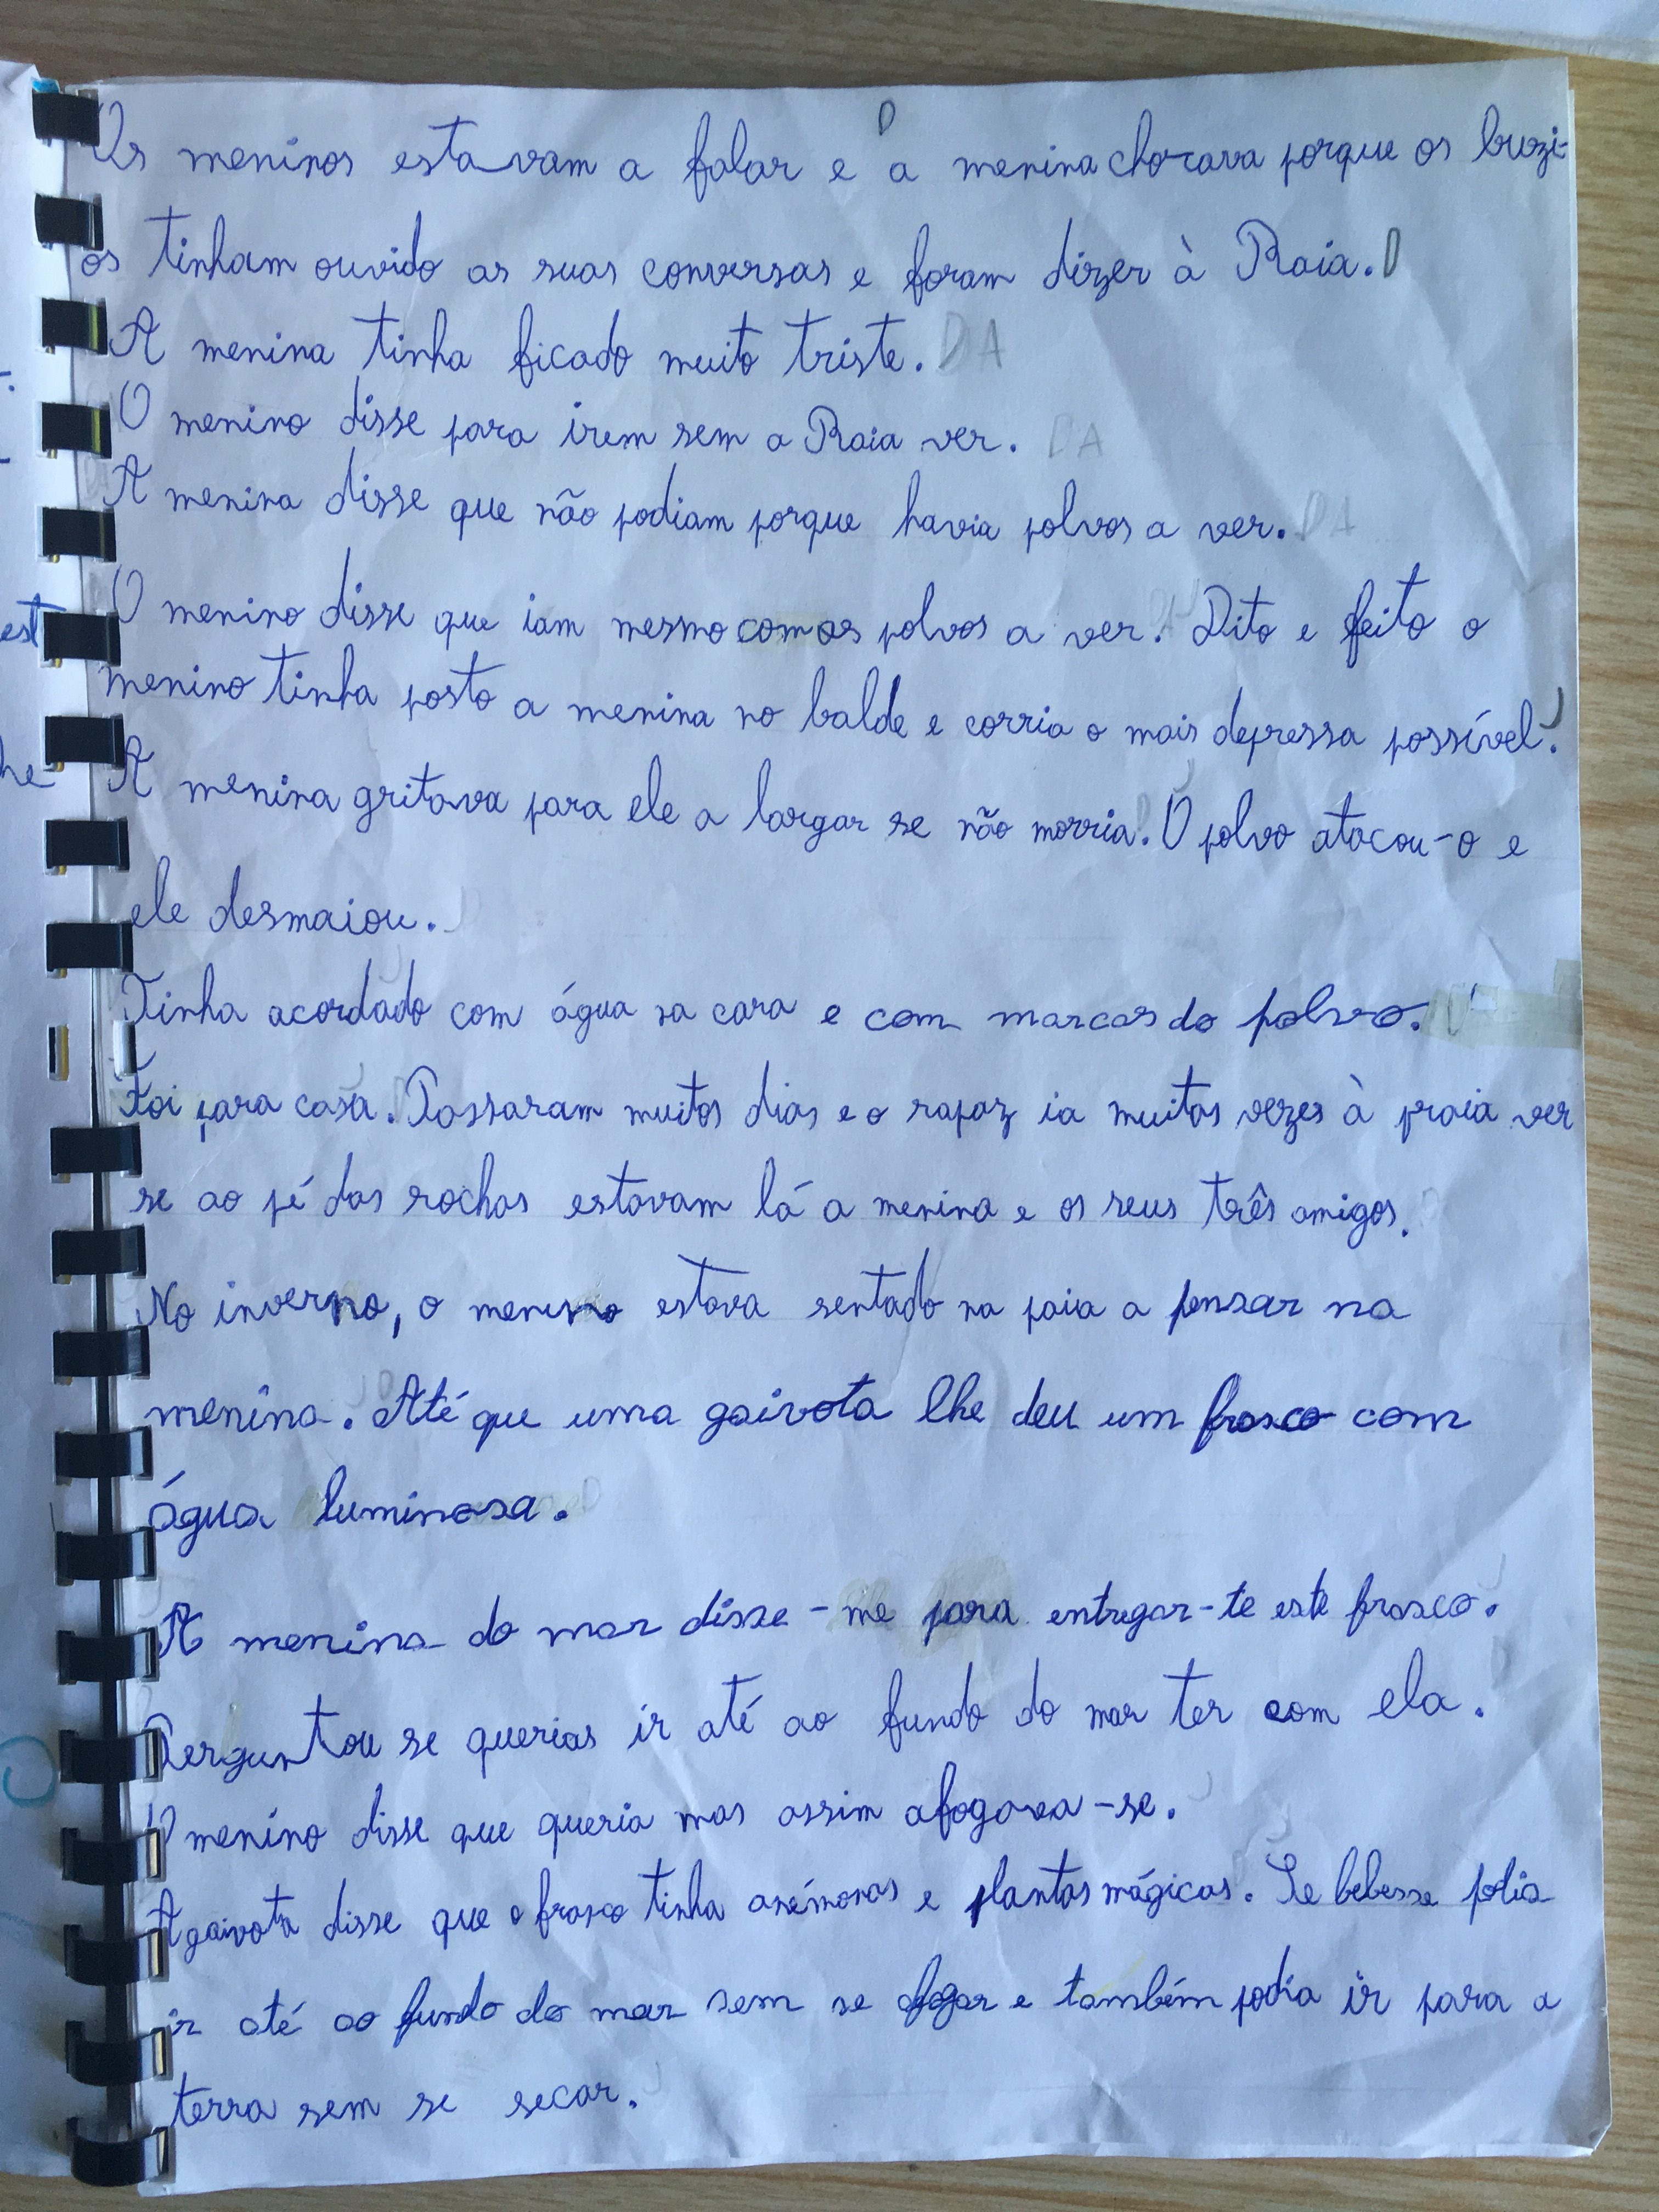 Os meninos estavam a falar e a menina chorava porque os buzi-
os tinham ouvido as suas conversas e foram dizer à Raia. D
A menina tinha ficado muito triste. DA
O menino disse para irem sem a Raia ver. DA
A menina disse que não podiam porque havia polvos a ver. DA
O menino disse que iam mesmo com os polvos a ver. Dito e feito o
menino tinha posto a menina no balde e corria o mais depressa possível.
A menina gritava para ele a largar se não morria. O polvo atacou-o e
ele desmaiou.
Tinha acordado com água na cara e com marcas do polvo.
Foi para casa. Passaram muitos dias e o rapaz ia muitas vezes à praia ver
se ao pé das rochas estavam lá a menina e os seus três amigos.
No inverno, o menino estava sentado na paia a pensar na
menina. Até que uma gaivota lhe deu um frasco com
água luminosa.
A menina do mar disse-me para entregar-te este frasco.
Perguntou se querias ir até ao fundo do mar ter com ela.
O menino disse que queria mas assim afogava-se.
A gaivota disse que o frasco tinha anémonas e plantas mágicas. Se bebesse podia
ir até ao fundo do mar sem se afogar e também podia ir para a
terra sem se secar.